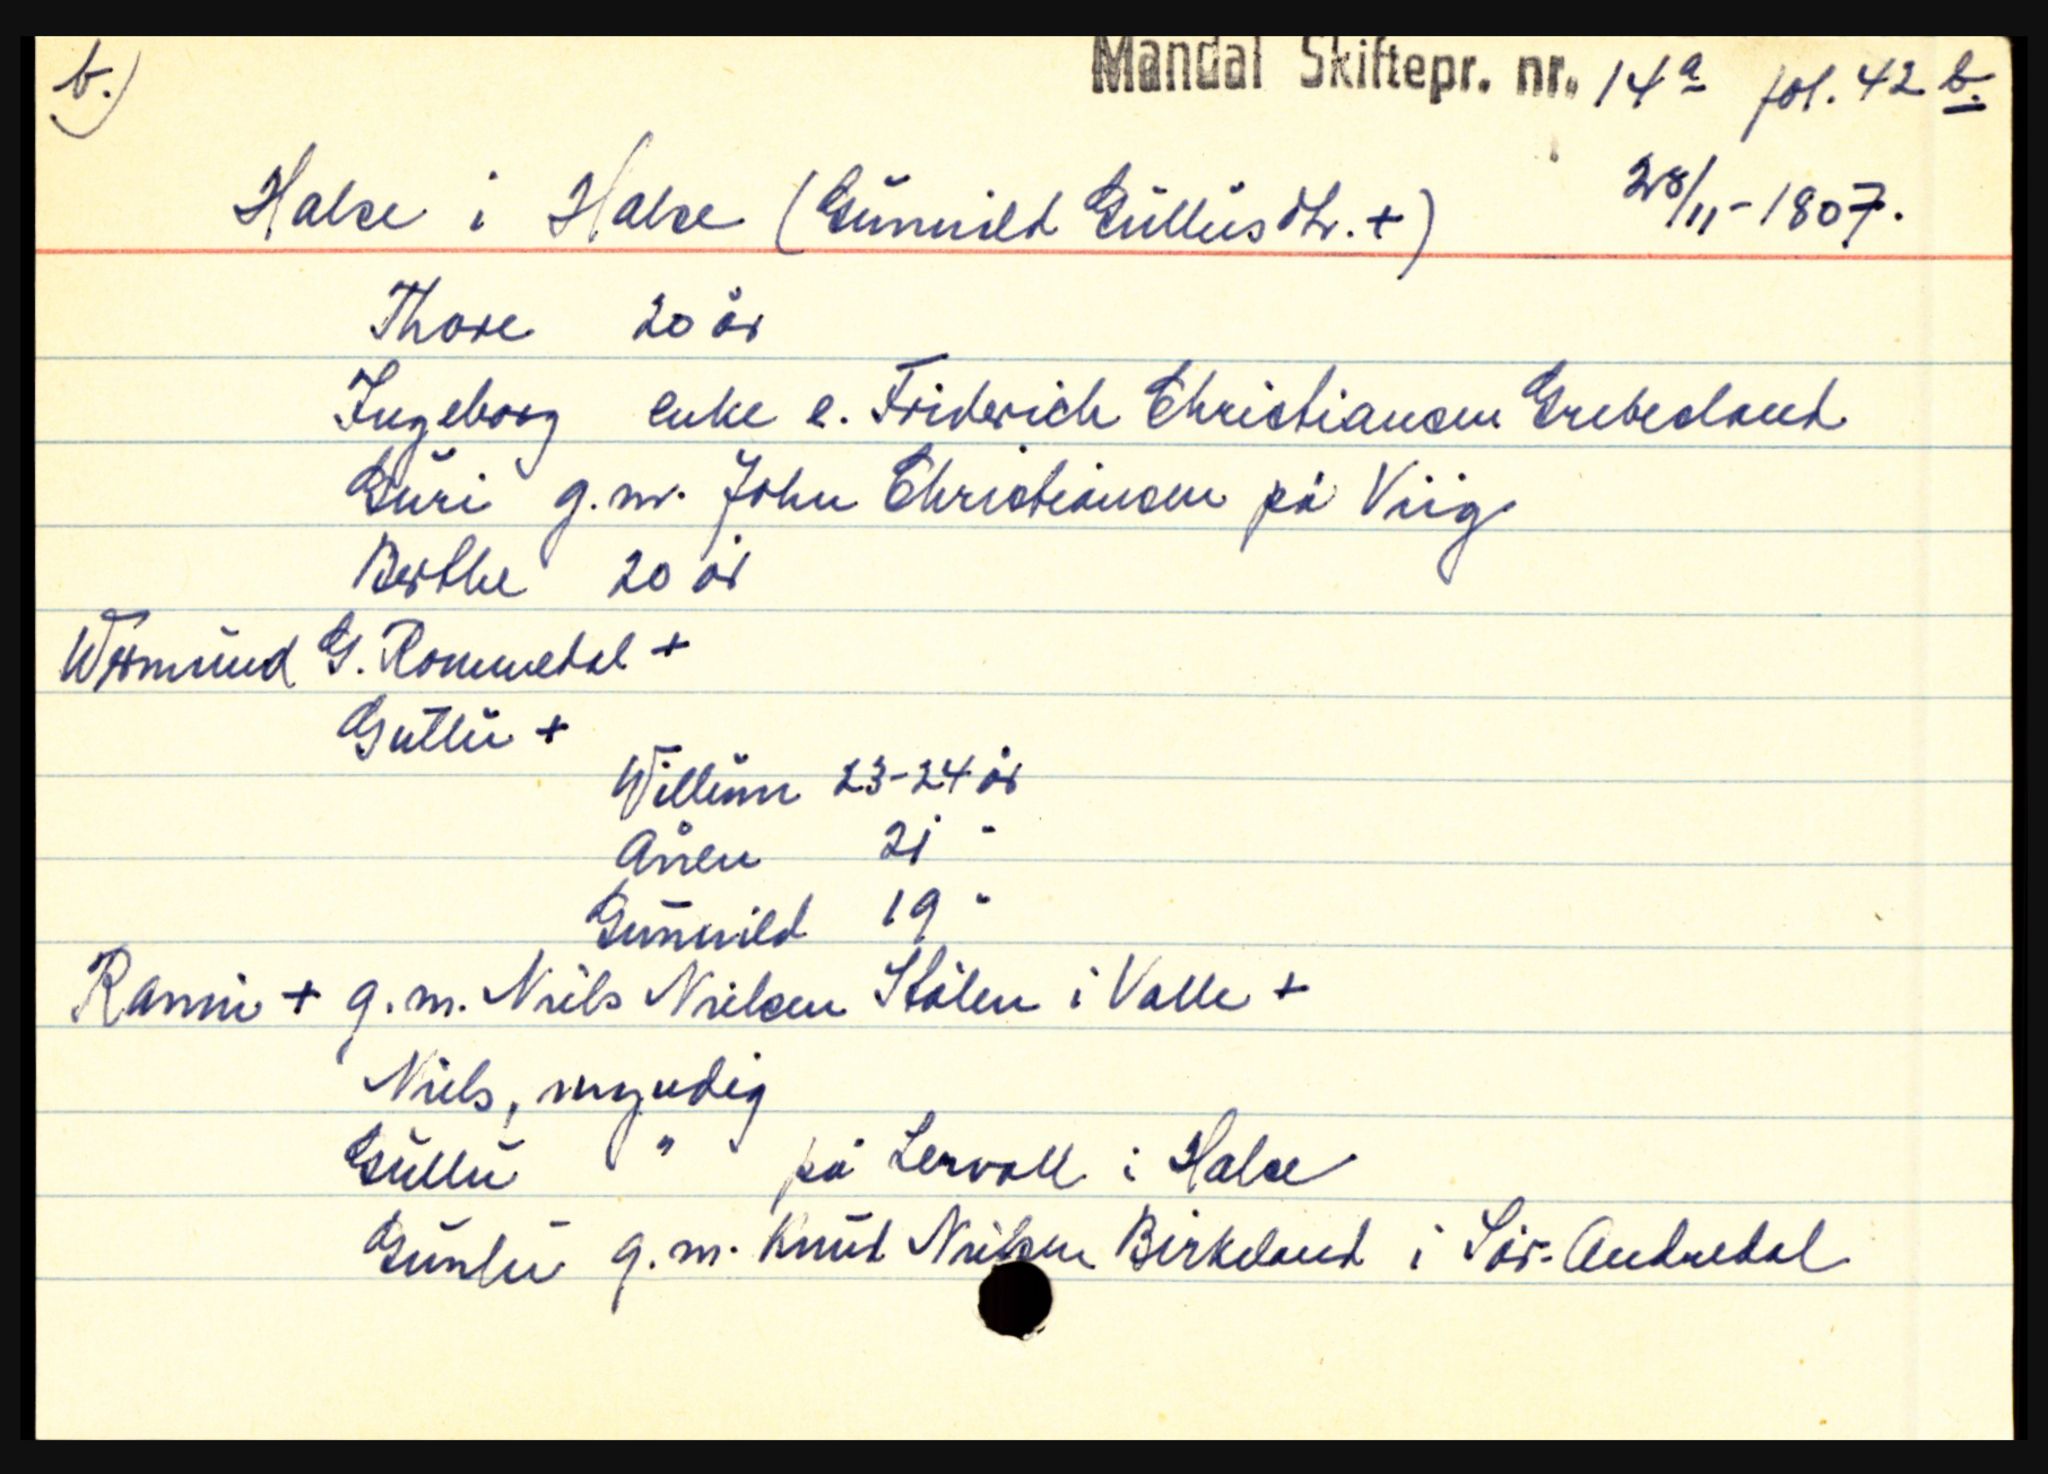 b.) Mandal Skiftepr. nr. 14a fol. 42 b.
Halse i Halse (Gunnild Gullusdtr. +) 28/11-1807.
Thore 20 år
Ingeborg enke e. Friderich Christiansen Grebesland
Guri g.m. John Christiansen på Viig
Berthe 20 år
Wermund G. Rommedal +
Gullu +
Willum 23-24 år
Anen 21 "
Gunnild 19 "
Ranni + g.m. Niels Nielsen Stålen i Valle +
Niels, myndig
Gullu " på Lervoll i Halse
Gunlu g.m. Knud Nielsen Birkeland i Sør-Audnedal